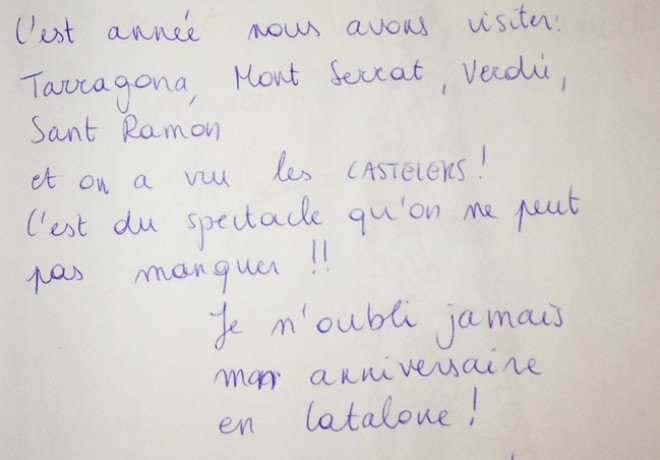 C'est année nous avons visiter:
Tarragona, Mont Serrat, Verdú,
Sant Ramon
et on a vu les CASTELERS!
C'est du spectacle qu'on ne peut
pas manquer!!
Je n'oubli jamais
anniversaire
en Catalone!